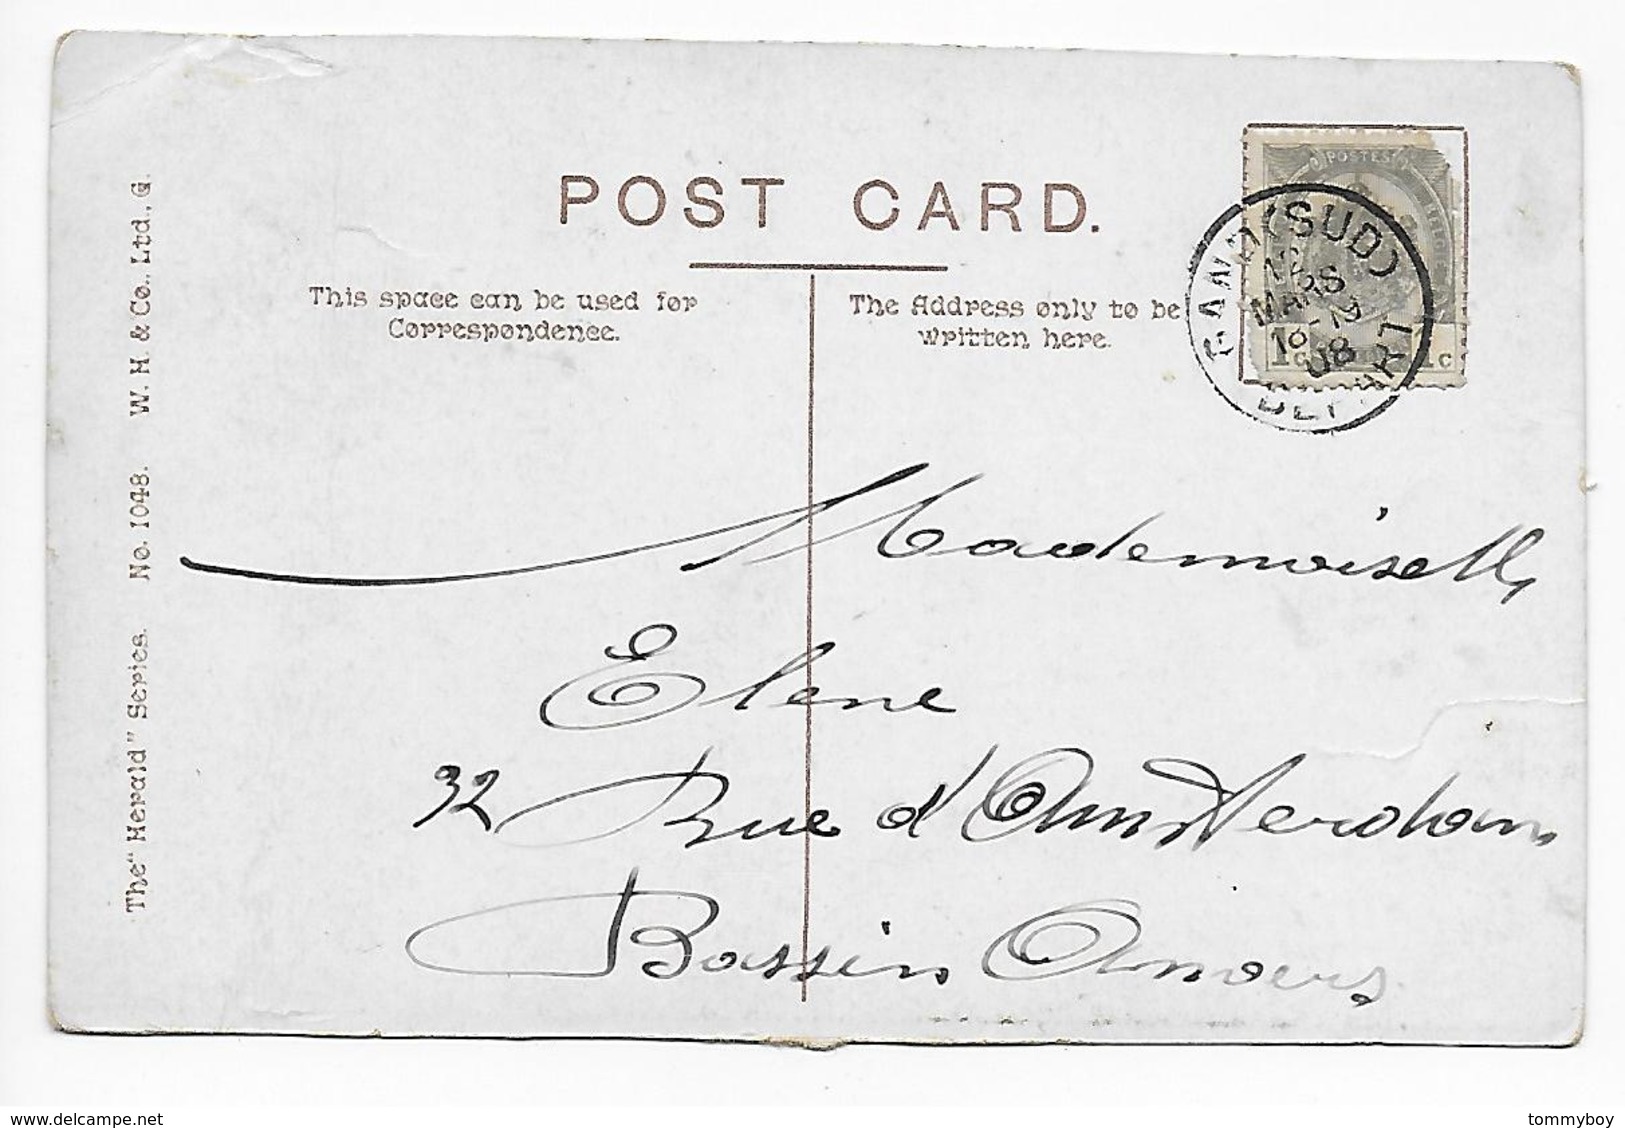 POST CARD.
This space can be used for
Correspondence.
The Address only to be
written here.
The "Herald" Series. No. 1048. W. H. & Co., Ltd., G.
POSTES
1c 1c
GAND (SUD)
12
MARS
18-19
08
DEPART
Mademoiselle
Elene
32 Rue d'Amsterdam
Bassin Anvers
delcampe.net
tommyboy